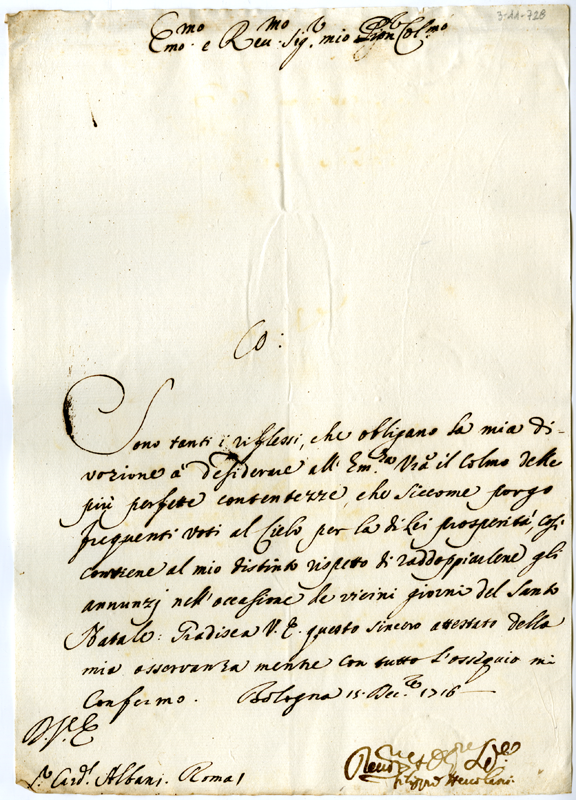 3-11-728
Emo. e Reu.mo Sig.r mio Pron Col.mo
Sono tanti i riflessi, che obligano la mia di-
vozione à desiderare all' Em.za Vrã il Colmo delle
più perfette contentezze, che siccome porgo
frequenti voti al Cielo per la di Lei prosperità, così
conviene al mio distinto rispetto di raddoppiarlene gli
annunzj nell' occasione de vicini giorni del Santo
Natale: Gradisca V. E. questo sincero attestato della
mia osservanza mentre con tutto l'ossequio mi
Confermo. Bologna 15 Dec.bre 1716
D. V. E.
S.r Card.l Albani. Roma
Hercolani